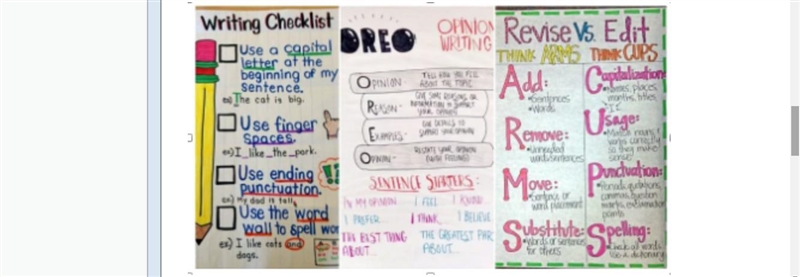 Writing Checklist
Use a capital
letter at the
beginning of my
sentence.
ex) The cat is big.
Use finger
spaces.
ex) I_like_the_park.
Use ending
punctuation.
ex) My dad is tall.
Use the word
wall to spell wor
ex) I like cats and
dogs.
OREO
OPINION
WRITING
OPINION- TELL HOW YOU FEEL
ABOUT THE TOPIC
REASON- GIVE SOME REASONS OR
INFORMATION TO SUPPORT
YOUR OPINION
EXAMPLES- GIVE DETAILS TO
SUPPORT YOUR OPINION
OPINION- RESTATE YOUR OPINION
(WITH FEELINGS)
SENTENCE STARTERS:
IN MY OPINION I FEEL I KNOW
I PREFER... I THINK I BELIEVE
THE BEST THING
ABOUT...
THE GREATEST PAR
ABOUT...
Revise Vs. Edit
THINK ARMS THINK CUPS
Add:
Sentences
Words
Remove:
Unneeded
words/sentences
Move:
Sentence or
word placement
Substitute:
Words or sentences
for others
Capitalization:
Names, places,
months, titles,
Usage:
Match nouns &
verbs correctly
Punctuation:
Periods, quotations,
commas, question
marks, exclamation
points
Spelling:
Check all words
Use a dictionary